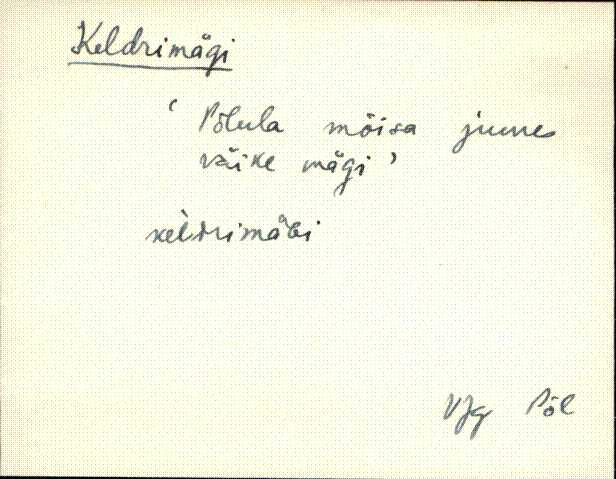 Keldrimägi
‘Põlula mõisa juures
väike mägi’
keldrimäGi
VJg Põl